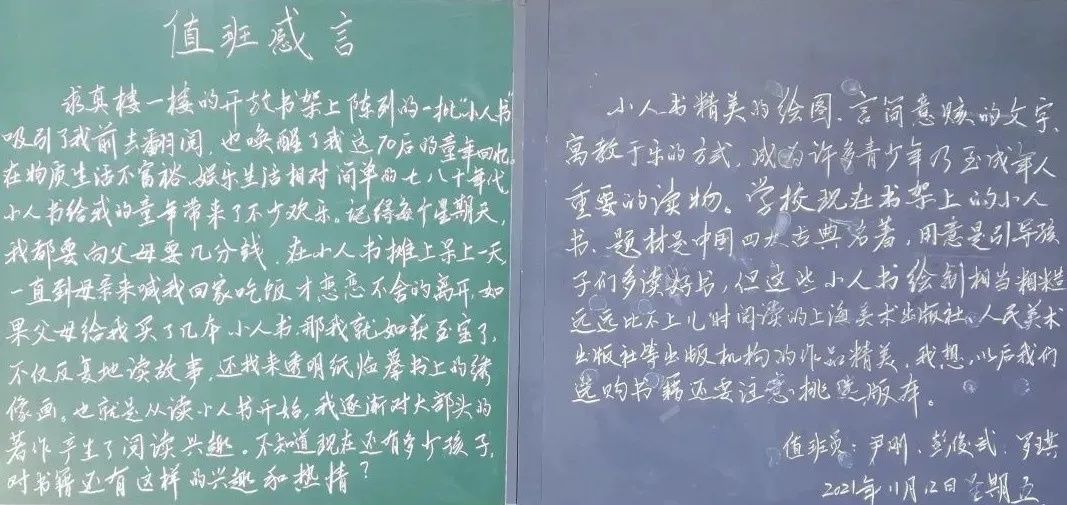 值班感言
求真楼一楼的开放书架上陈列的一批“小人书”
吸引了我前去翻阅，也唤醒了我这70后的童年回忆。
在物质生活不富裕、娱乐生活相对简单的七八十年代
小人书给我的童年带来了不少欢乐。记得每个星期天，
我都要向父母要几分钱，在小人书摊上呆上一天
一直到母亲来喊我回家吃饭才恋恋不舍的离开，如
果父母给我买了几本小人书，那我就如获至宝了，
不仅反复地读故事，还找来透明纸临摹书上的绣
像画。也就是从读小人书开始，我逐渐对大部头的
著作产生了阅读兴趣。不知道现在还有多少孩子，
对书籍还有这样的兴趣和热情？
小人书精美的绘图、言简意赅的文字、
寓教于乐的方式，成为许多青少年乃至成年人
重要的读物。学校现在书架上的小人
书、题材是中国四大古典名著，用意是引导孩
子们多读好书，但这些小人书绘制相当粗糙
远远比不上儿时阅读的上海美术出版社、人民美术
出版社等出版机构的作品精美，我想，以后我们
选购书籍还要注意挑选版本。
值班员：尹刚、彭俊武、罗琪
2021年11月12日 星期五